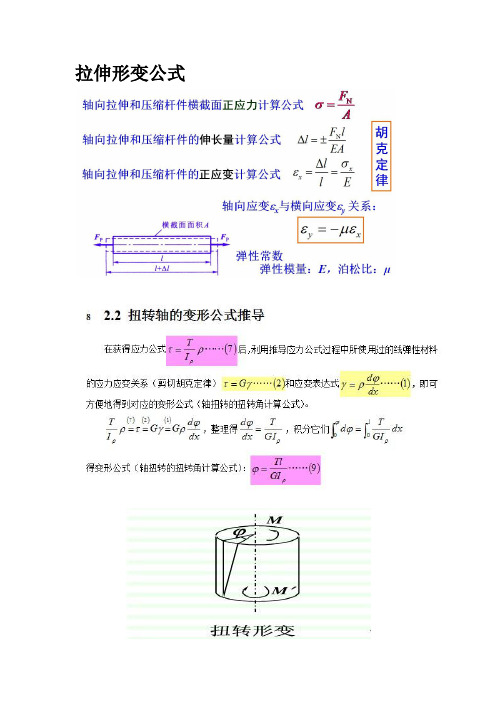 拉伸形变公式
轴向拉伸和压缩杆件横截面正应力计算公式 σ = F_N / A
轴向拉伸和压缩杆件的伸长量计算公式 Δl = ± F_N l / EA
轴向拉伸和压缩杆件的正应变计算公式 ε_x = Δl / l = σ_x / E
胡克定律
轴向应变ε_x与横向应变ε_y 关系：
ε_y = −με_x
横截面面积A
F_P F_P
l
l+Δl
弹性常数
弹性模量：E，泊松比：μ
8 2.2 扭转轴的变形公式推导
在获得应力公式 τ = T / I_ρ ρ ……(7) 后，利用推导应力公式过程中所使用过的线弹性材料
的应力应变关系（剪切胡克定律） τ = Gγ ……(2) 和应变表达式 γ = ρ dφ / dx ……(1)，即可
方便地得到对应的变形公式（轴扭转的扭转角计算公式）。
T / I_ρ ρ =(7) τ =(2) Gγ =(1) Gρ dφ / dx，整理得 dφ / dx = T / GI_ρ，积分它们 ∫_0^φ dφ = ∫_0^l T / GI_ρ dx
得变形公式（轴扭转的扭转角计算公式）： φ = Tl / GI_ρ ……(9)
M
φ
M′
扭转形变